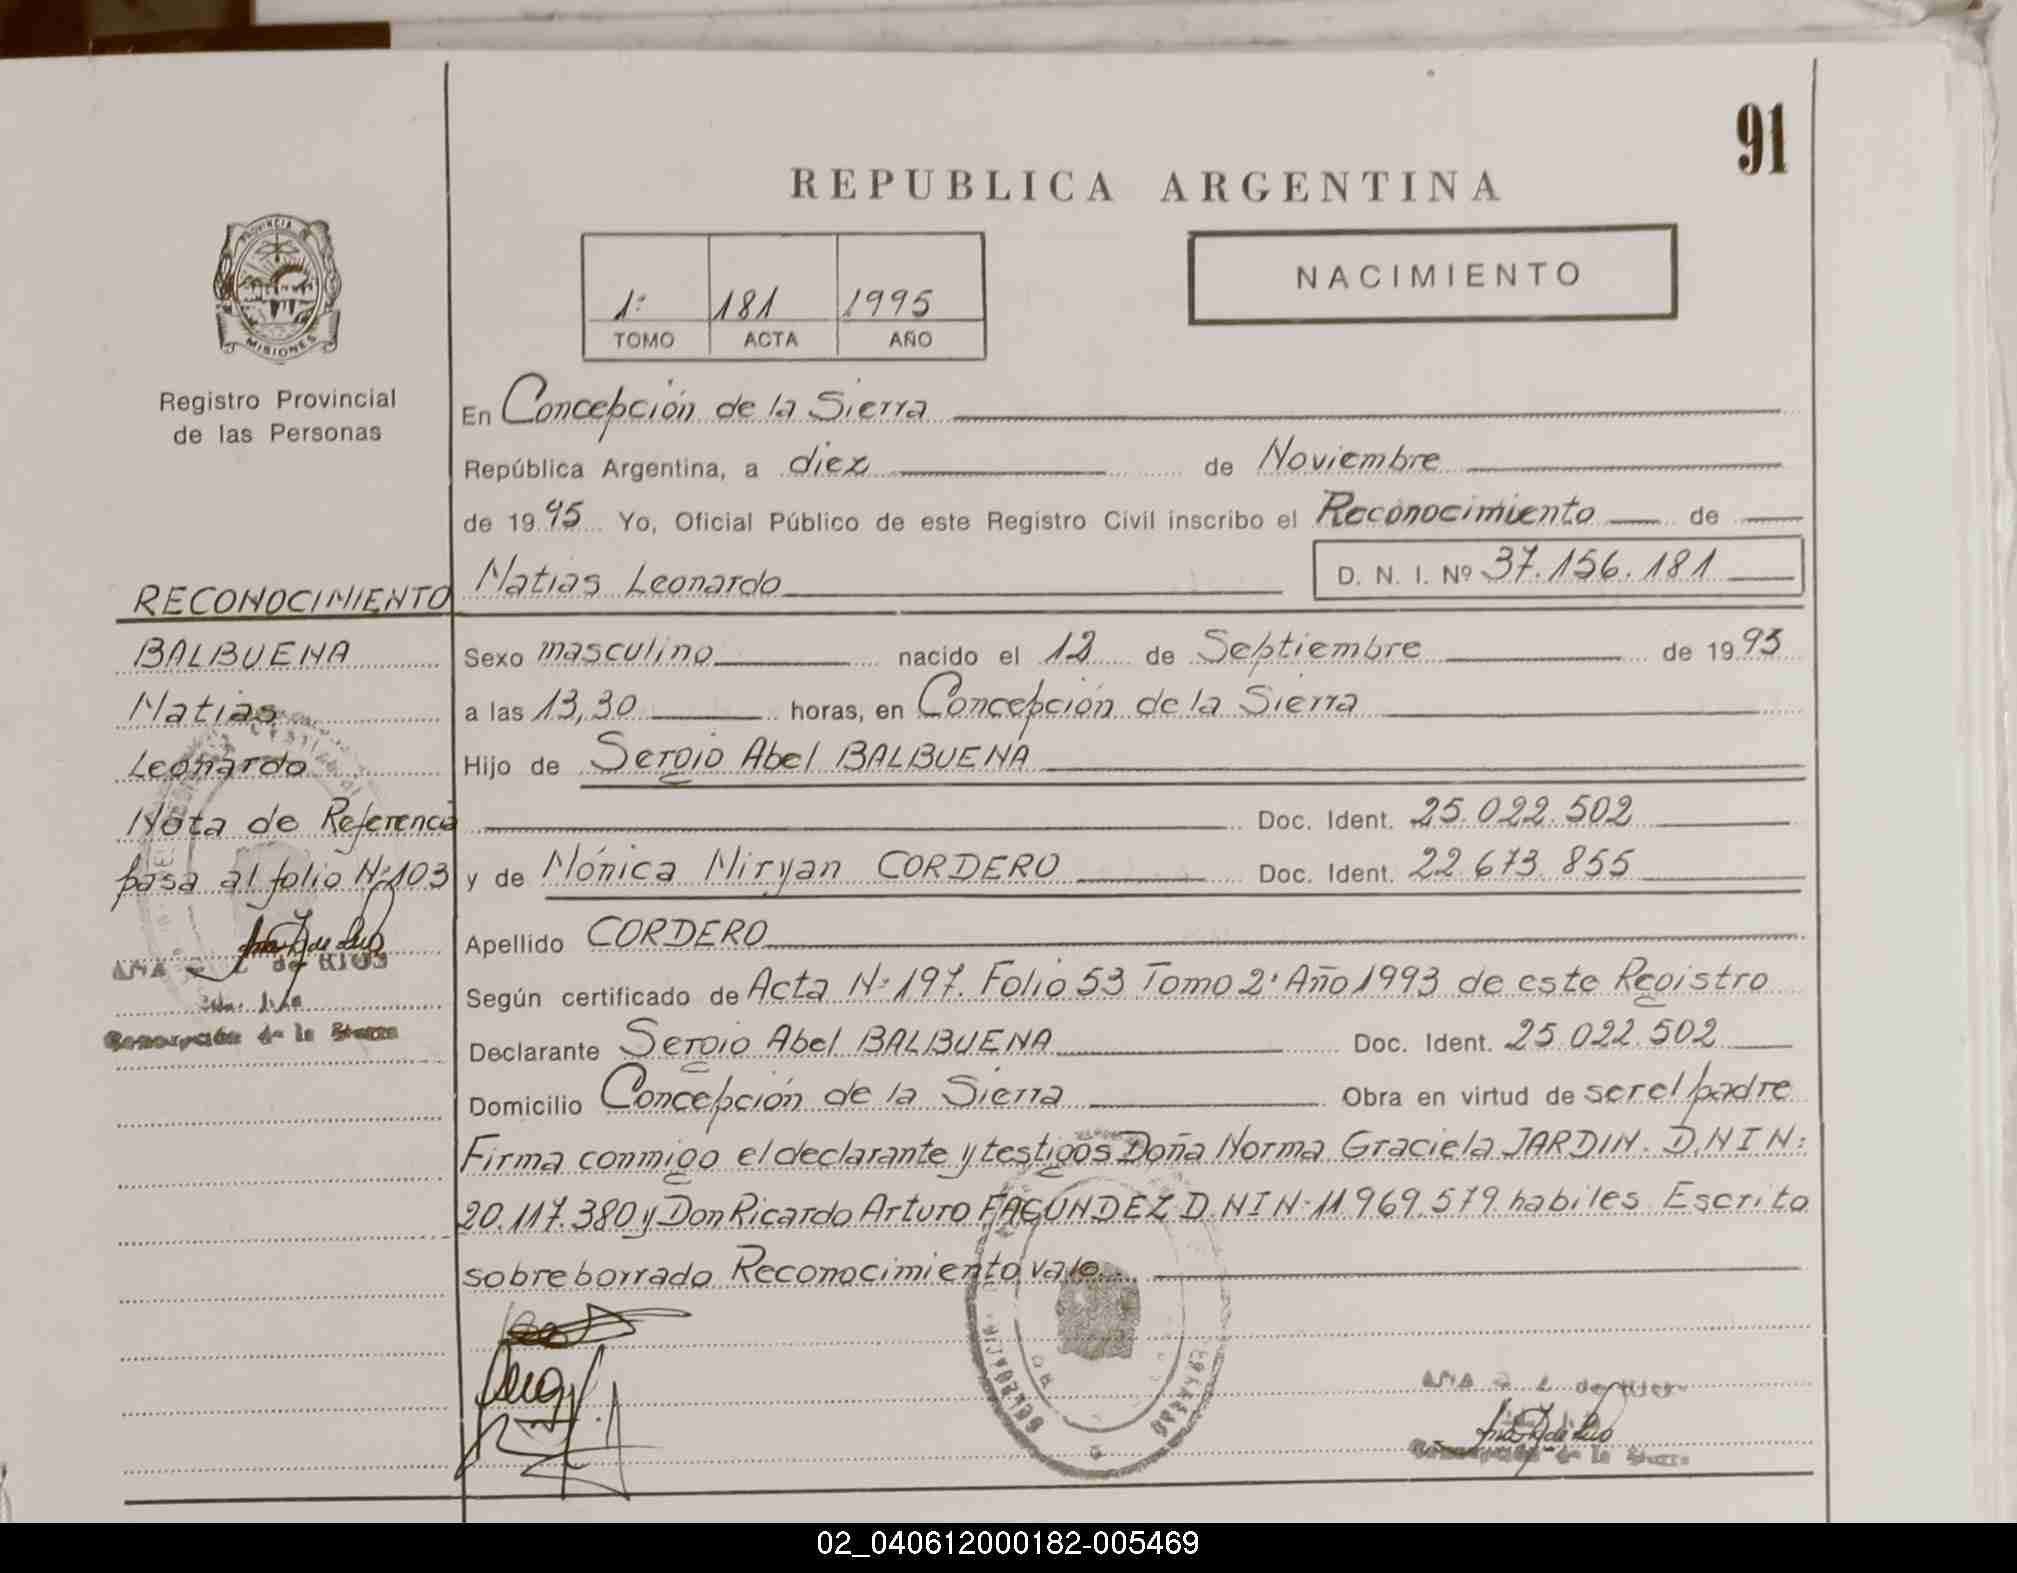 91
REPUBLICA ARGENTINA
PROVINCIA DE
MISIONES
Registro Provincial
de las Personas
1º 181 1995
TOMO ACTA AÑO
NACIMIENTO
En Concepción de la Sierra
República Argentina, a diez de Noviembre
de 1995 Yo, Oficial Público de este Registro Civil inscribo el Reconocimiento de
Matias Leonardo D. N. I. Nº 37.156.181
RECONOCIMIENTO
BALBUENA
Matias
Leonardo
Nota de Referencia
pasa al folio Nº 103
de RIOS
Concepción de la Sierra
Sexo masculino nacido el 12 de Septiembre de 1993
a las 13,30 horas, en Concepción de la Sierra
Hijo de Sergio Abel BALBUENA
Doc. Ident. 25.022.502
y de Mónica Miryan CORDERO Doc. Ident. 22.673.855
Apellido CORDERO
Según certificado de Acta Nº 197. Folio 53 Tomo 2º Año 1993 de este Registro
Declarante Sergio Abel BALBUENA Doc. Ident. 25.022.502
Domicilio Concepción de la Sierra Obra en virtud de ser el padre
Firma conmigo el declarante y testigos Doña Norma Graciela JARDIN. D.N I N:
20.117.380 y Don Ricardo Arturo FAGUNDEZ D.N I N: 11.969.579 habiles. Escrito
sobre borrado Reconocimiento vale.
Concepción de la Sierra
02_040612000182-005469